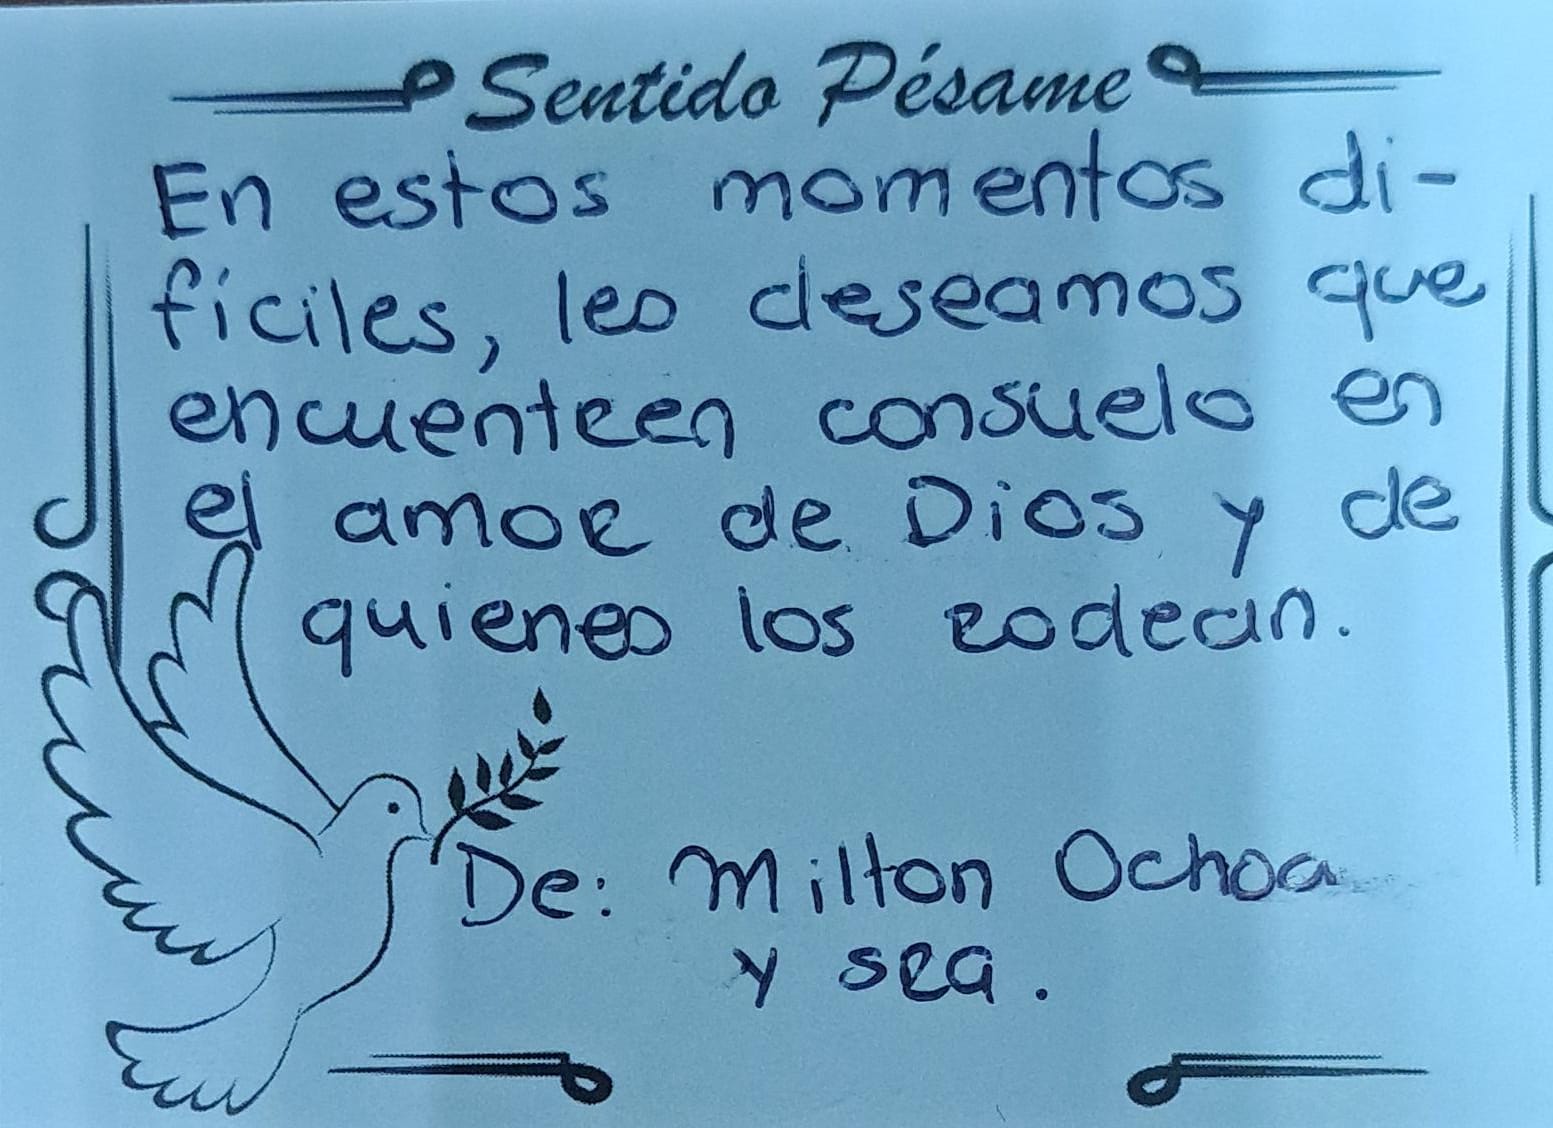 Sentido Pésame
En estos momentos di-
fíciles, les deseamos que
encuentren consuelo en
el amor de Dios y de
quienes los rodean.
De: Milton Ochoa
y sra.